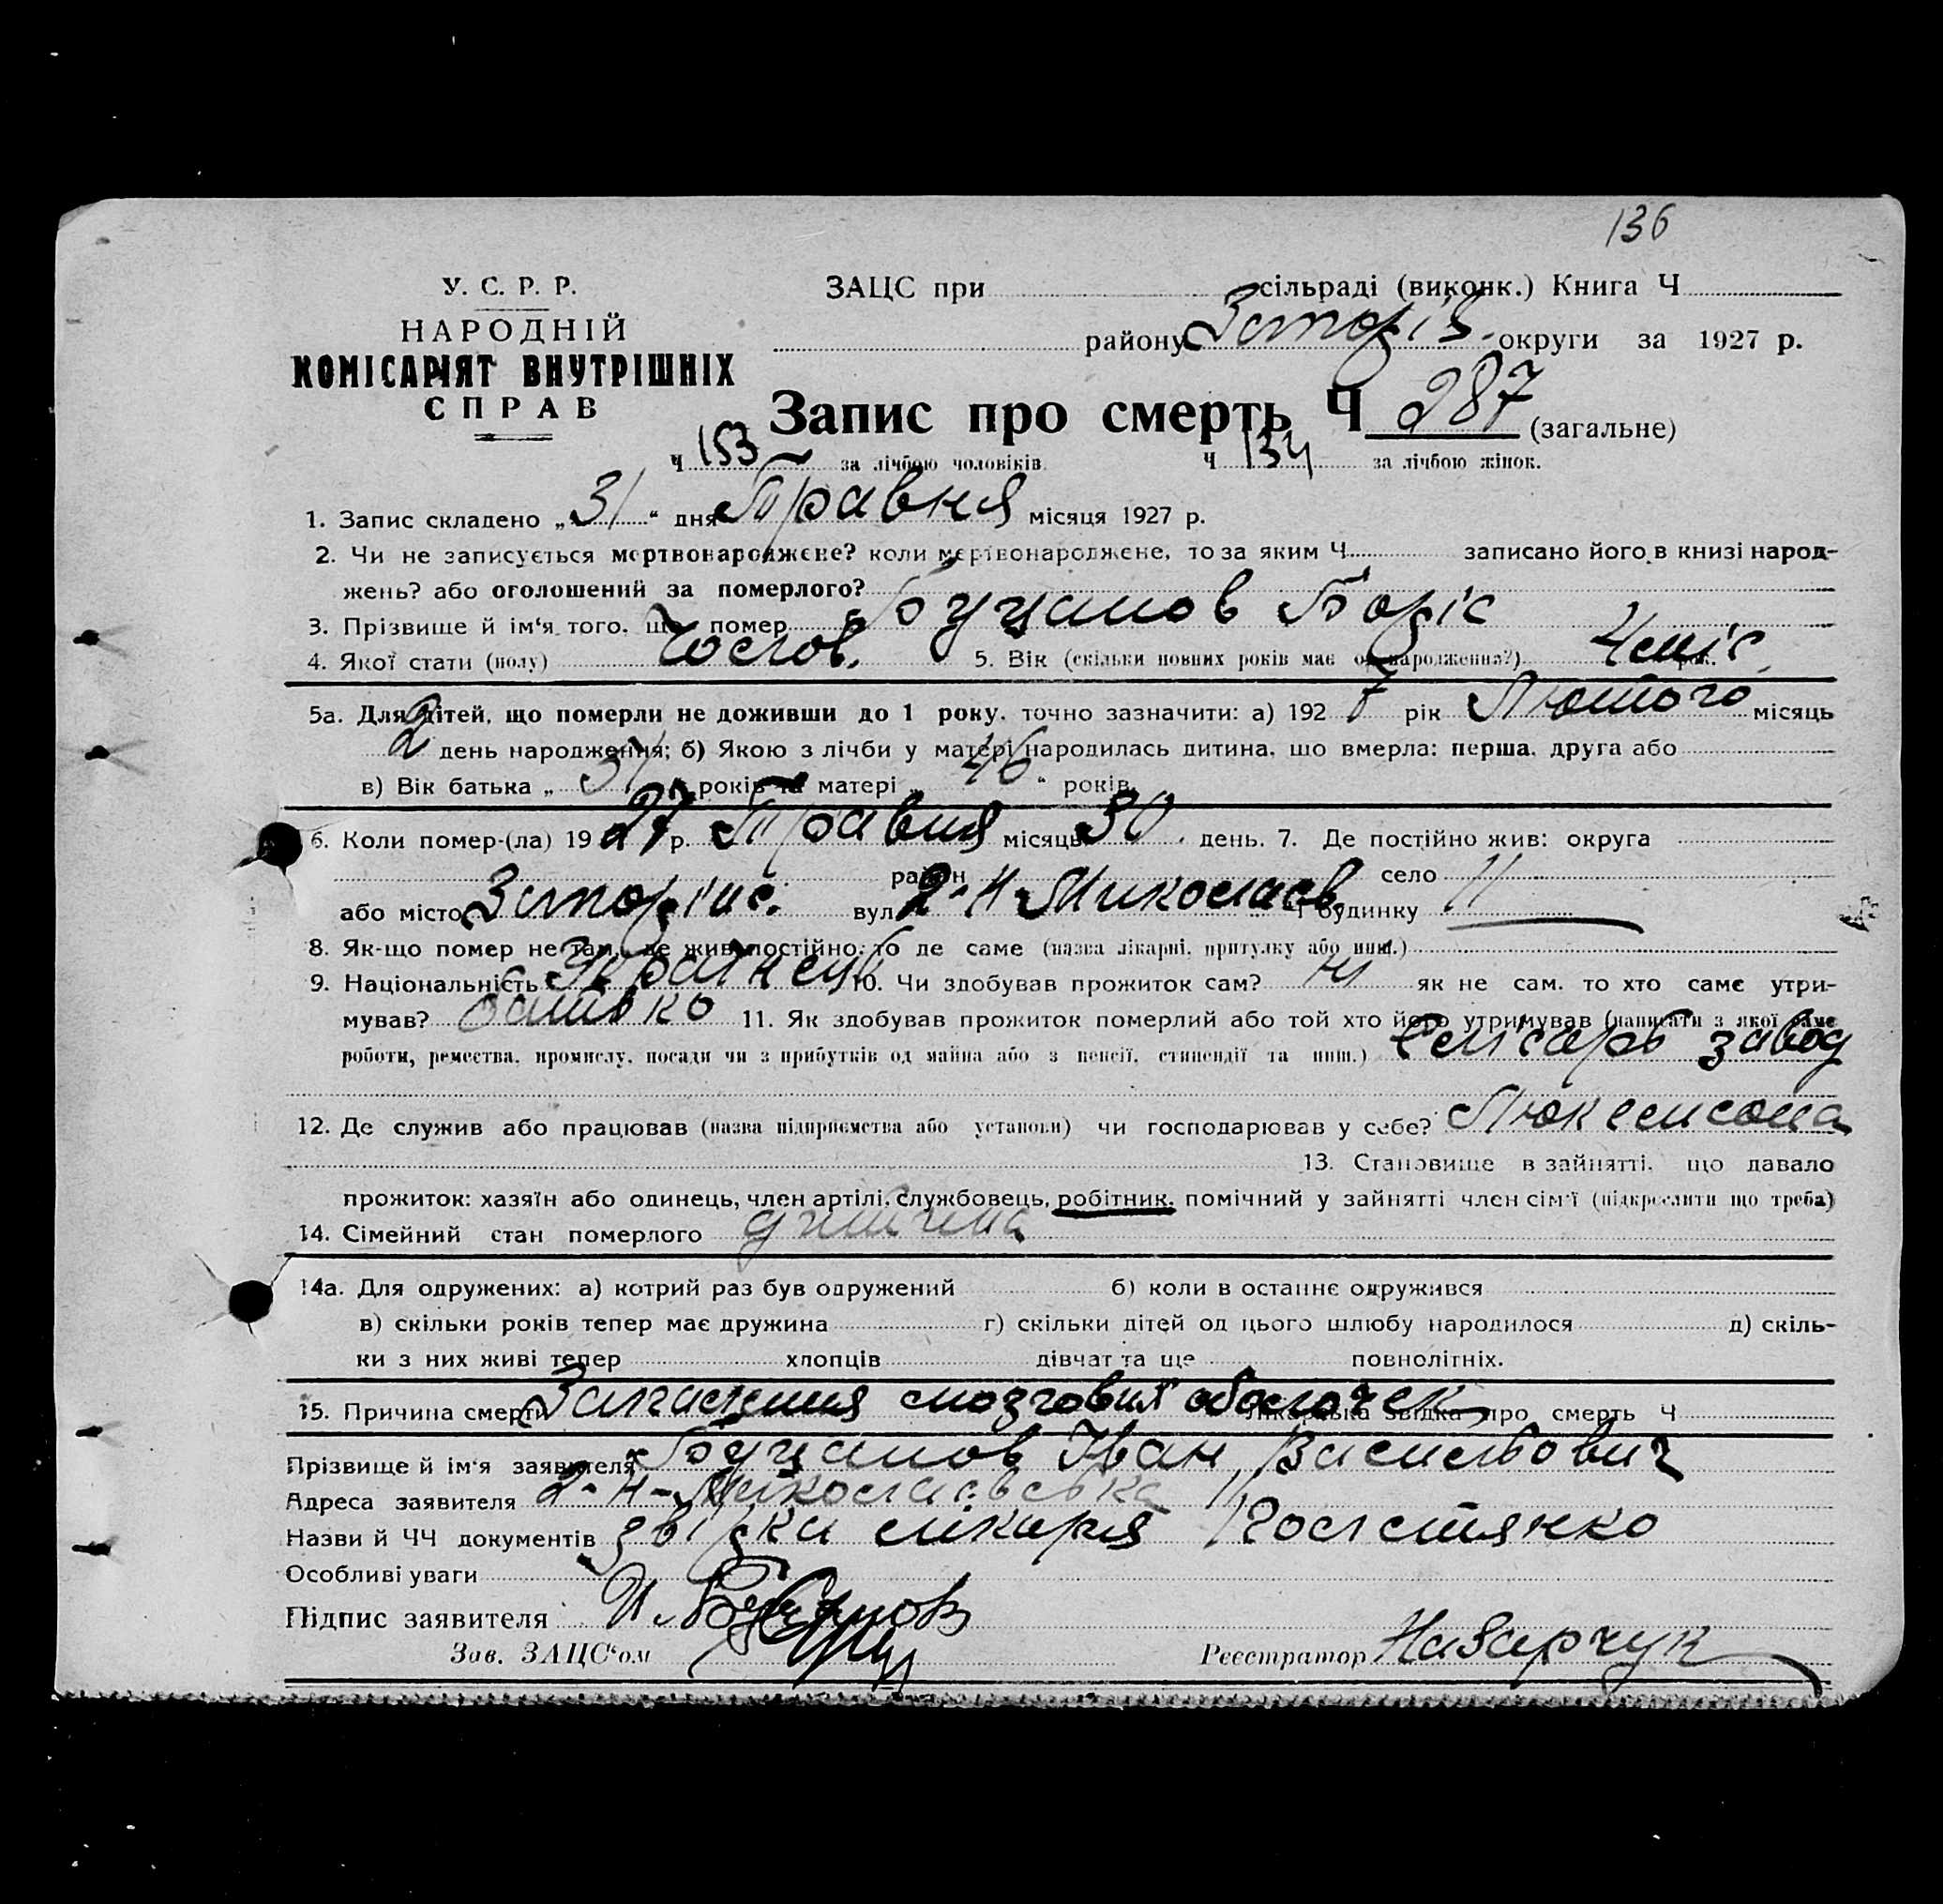 136
У. С. Р. Р.
НАРОДНІЙ
КОМІСАРІЯТ ВНУТРІШНІХ
СПРАВ
ЗАЦС при сільраді (виконк.) Книга Ч
району Запоріз. округи за 1927 р.
Запис про смерть Ч 287 (загальне)
Ч 153 за лічбою чоловіків. Ч 134 за лічбою жінок.
1. Запис складено „31“ дня Травня місяця 1927 р.
2. Чи не записується мертвонароджене? коли мертвонароджене, то за яким Ч. записано його в книзі народ-
жень? або оголошений за померлого?
3. Прізвище й ім‘я того, що помер Буцанов Боріс
4. Якої статі (полу) Чолов. 5. Вік (скільки повних років має од народження?) 4 міс. рок.
5а. Для дітей, що померли не доживши до 1 року, точно зазначити: а) 1927 рік Лютого місяць
2 день народження; б) Якою з лічби у матері народилась дитина, що вмерла: перша, друга або
в) Вік батька „ років та матері „46“ років.
6. Коли помер-(ла) 1927 р. Травня місяць 30 день. 7. Де постійно жив: округа
район село
або місто вул. 2-Н-Миколаєв. Ч будинку 11
8. Як-що помер не там, де жив постійно, то де саме (назва лікарні, притулку або инш.)
9. Національність Українець 10. Чи здобував прожиток сам? ні як не сам, то хто саме утри-
мував? батько 11. Як здобував прожиток померлий або той хто його утримував (написати з якої саме
роботи, ремества, промислу, посади чи з прибутків од майна або з пенсії, стипендії та инш.) слюсарь завод
12. Де служив або працював (назва підприємства або установи) чи господарював у себе?
13. Становище в зайнятті, що давало
прожиток: хазяїн або одинець, член артілі, службовець, робітник, помічний у зайнятті член сім'ї (підкреслити що треба)
14. Сімейний стан померлого дитина
14а. Для одружених: а) котрий раз був одружений б) коли в останнє одружився
в) скільки років тепер має дружина г) скільки дітей од цього шлюбу народилося д) скіль-
ки з них живі тепер хлопців дівчат та ще повнолітніх.
15. Причина смерти мозговых оболочек Лікарська звідка про смерть Ч
Прізвище й ім'я заявителя Буцанов Іван Васильович
Адреса заявителя 2-Н-Миколаєвська 11
Назви й ЧЧ документів звідка лікаря
Особливі уваги
Підпис заявителя И. Буцанов
Зав. ЗАЦС‘ом Реєстратор Назарчук